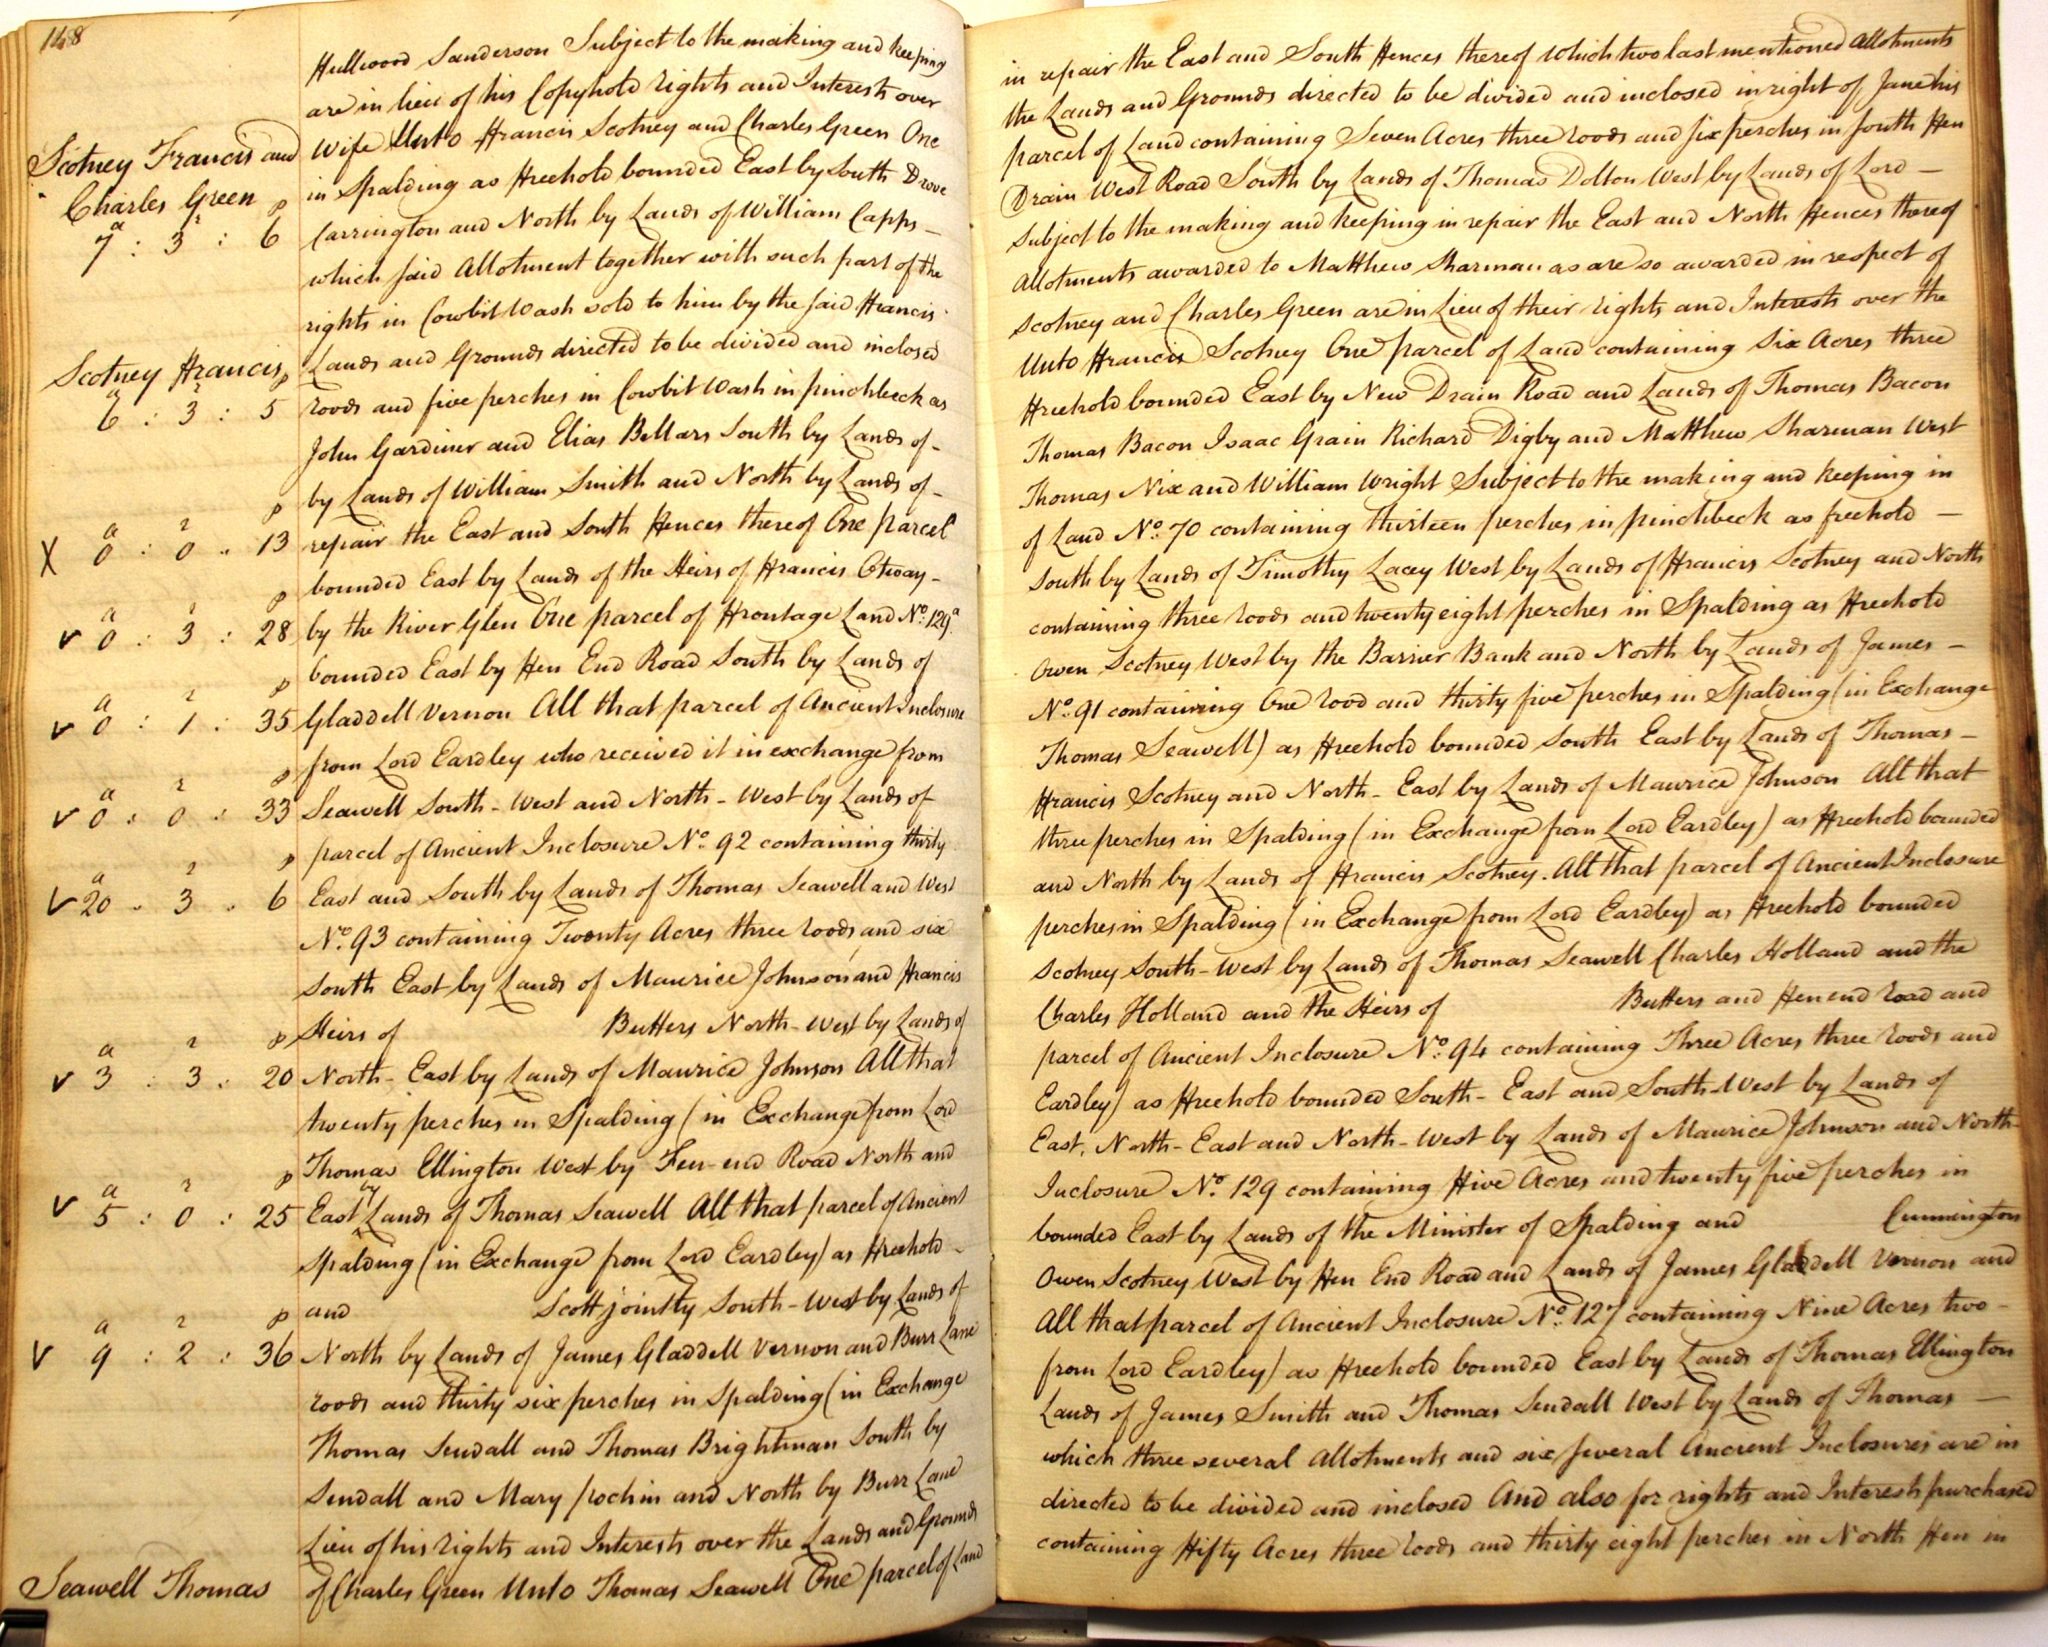 148
Hullwood Sanderson Subject to the making and keeping in repair the East and South Fences thereof which two last mentioned Allotments
are in lieu of his Copyhold rights and Interests over the Lands and Grounds directed to be divided and inclosed in right of Jane his
Scotney Francis and Wife Unto Francis Scotney and Charles Green One parcel of Land containing Seven Acres three roods and six perches in South Fen
Charles Green in Spalding as Freehold bounded East by South Drove Drain West Road South by Lands of Thomas Dolton West by Lands of Lord –
a r p
7 : 3 : 6 Carrington and North by Lands of William Capps – Subject to the making and keeping in repair the East and North Fences thereof
which said Allotment together with such part of the Allotments awarded to Matthew Sharman as are so awarded in respect of
rights in Cowbit Wash sold to him by the said Francis Scotney and Charles Green are in Lieu of their rights and Interests over the
Scotney Francis Lands and Grounds directed to be divided and inclosed Unto Francis Scotney One parcel of Land containing Six Acres three
a r p
6 : 3 : 5 roods and five perches in Cowbit Wash in pinchbeck as Freehold bounded East by New Drain Road and Lands of Thomas Bacon
John Gardiner and Elias Bellars South by Lands of – Thomas Bacon Isaac Grain Richard Digby and Matthew Sharman West
by Lands of William Smith and North by Lands of – Thomas Nix and William Wright Subject to the making and keeping in
a r p
X 0 : 0 : 13 repair the East and South Fences thereof One parcel of Land No. 70 containing thirteen perches in pinchbeck as freehold –
bounded East by Lands of the Heirs of Francis Otway – South by Lands of Timothy Lacey West by Lands of Francis Scotney and North
a r p
v 0 : 3 : 28 by the River Glen One parcel of Frontage Land No. 129a containing three roods and twenty eight perches in Spalding as Freehold
bounded East by Fen End Road South by Lands of Owen Scotney West by the Barrier Bank and North by Lands of James –
a r p
v 0 : 1 : 35 Gladdell Vernon All that parcel of Ancient Inclosure No. 91 containing One rood and thirty five perches in Spalding (in Exchange
from Lord Eardley who received it in exchange from Thomas Seawell) as Freehold bounded South East by Lands of Thomas –
a r p
v 0 : 0 : 33 Seawell South-West and North-West by Lands of Francis Scotney and North-East by Lands of Maurice Johnson All that
parcel of Ancient Inclosure No. 92 containing thirty three perches in Spalding (in Exchange from Lord Eardley) as Freehold bounded
a r p
v 20 : 3 : 6 East and South by Lands of Thomas Seawell and West and North by Lands of Francis Scotney. All that parcel of Ancient Inclosure
No. 93 containing Twenty Acres three roods and six perches in Spalding (in Exchange from Lord Eardley) as Freehold bounded
South East by Lands of Maurice Johnson and Francis Scotney South-West by Lands of Thomas Seawell Charles Holland and the
Heirs of Butters North-West by Lands of Charles Holland and the Heirs of Butters and Fen end road and
a r p
v 3 : 3 : 20 North-East by Lands of Maurice Johnson All that parcel of Ancient Inclosure No. 94 containing Three Acres three roods and
twenty perches in Spalding (in Exchange from Lord Eardley) as Freehold bounded South-East and South-West by Lands of
Thomas Ellington West by Fen-end Road North and East, North-East and North-West by Lands of Maurice Johnson and North-
a r p
v 5 : 0 : 25 East by Lands of Thomas Seawell All that parcel of Ancient Inclosure No. 129 containing Five Acres and twenty five perches in
Spalding (in Exchange from Lord Eardley) as Freehold – bounded East by Lands of the Minister of Spalding and Cunnington
and Scott jointly South-West by Lands of Owen Scotney West by Fen End Road and Lands of James Gladdell Vernon and
a r p
v 9 : 2 : 36 North by Lands of James Gladdell Vernon and Burr Lane All that parcel of Ancient Inclosure No. 127 containing Nine Acres two –
roods and thirty six perches in Spalding (in Exchange from Lord Eardley) as Freehold bounded East by Lands of Thomas Ellington
Thomas Sendall and Thomas Brightman South by Lands of James Smith and Thomas Sendall West by Lands of Thomas –
Sendall and Mary pochin and North by Burr Lane which three several Allotments and six several Ancient Inclosures are in
Lieu of his rights and Interests over the Lands and Grounds directed to be divided and inclosed And also for rights and Interests purchased
Seawell Thomas of Charles Green Unto Thomas Seawell One parcel of Land containing Fifty Acres three roods and thirty eight perches in North Fen in